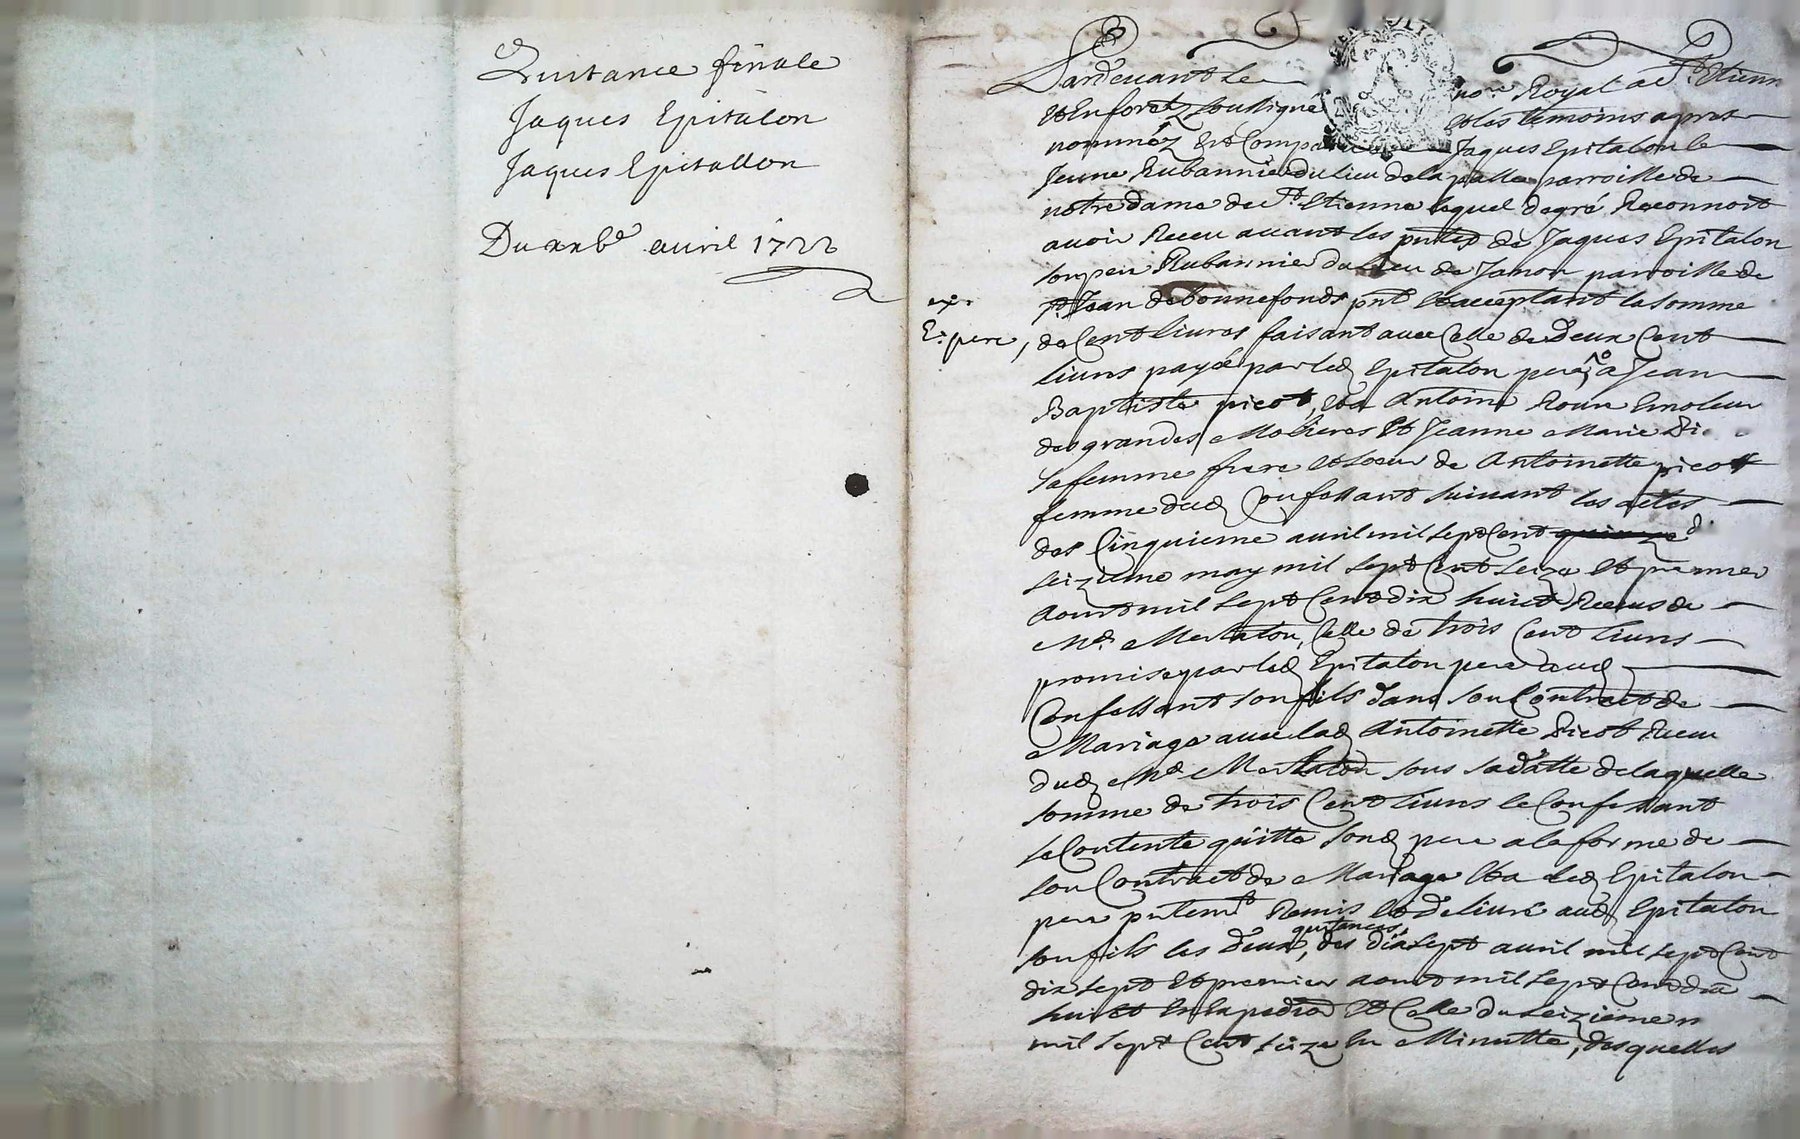 Quitance finale
Jaques Epitalon
Jaques Epitallon
Du xxbe avril 1722
Pardevant le no.re Royal a St Etienne
et En foretz soussigné et les temoins apres
nomméz Est Comparu Jaques Epitalon le
Jeune Rubannier du lieu de la palle parroisse de
notre dame de St Etienne lequel de gré Reconnoit
avoir Receu avant les pntes de Jaques Epitalon
son pere Rubannier du lieu de Janon parroisse de
St Jean de bonnefonds pnt et acceptant la somme
de Cent livres faisant avec Celle de Deux Cent
E: pere,
livres payée par led Epitalon pere a Jean
Baptiste picot, et a Antoine Roux Emoleur
des grandes Molieres Et Jeanne Marie
sa femme frere et soeur de Antoinette picot
femme dud Confessant suivant les actes
des Cinquieme avril mil sept Cent
seizieme may mil sept Cent seize et premier
Aoust mil sept Cent dix huict Receus de
Me Mertalon, Celle de trois Cent livres
promise par led Epitalon pere aud
Confessant son fils dans son Contract de
Mariage avec lad Antoinette Picot Receu
dud Me Mertalon sous sa datte de laquelle
somme de trois Cent livres le Confessant
se Contente quitte sond pere a la forme de
son Contract de Mariage Et a led Epitalon
pere pntemt Remis et delivré aud Epitalon
quitances
son fils les deux, des dixsept avril mil sept Cent
dix sept et premier aoust mil sept Cent dix
huict En Expedition et Celle du seizieme
mil sept Cent seize En Minutte, desquelles